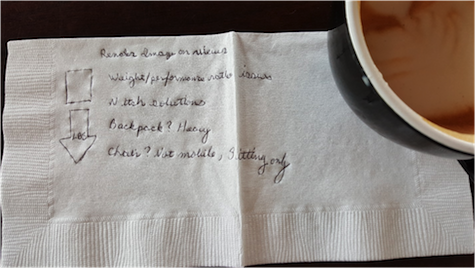 Render Image on
Weight/performance ratio issues
solutions
Backpack? Heavy
Chair? Not mobile, Sitting only